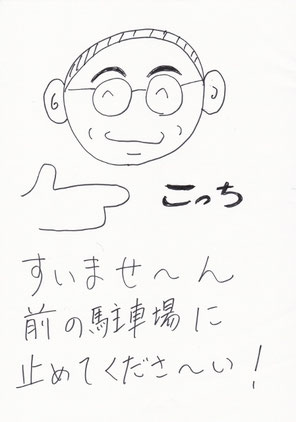 こっち
すいませ〜ん
前の駐車場に
止めてくださ〜い！